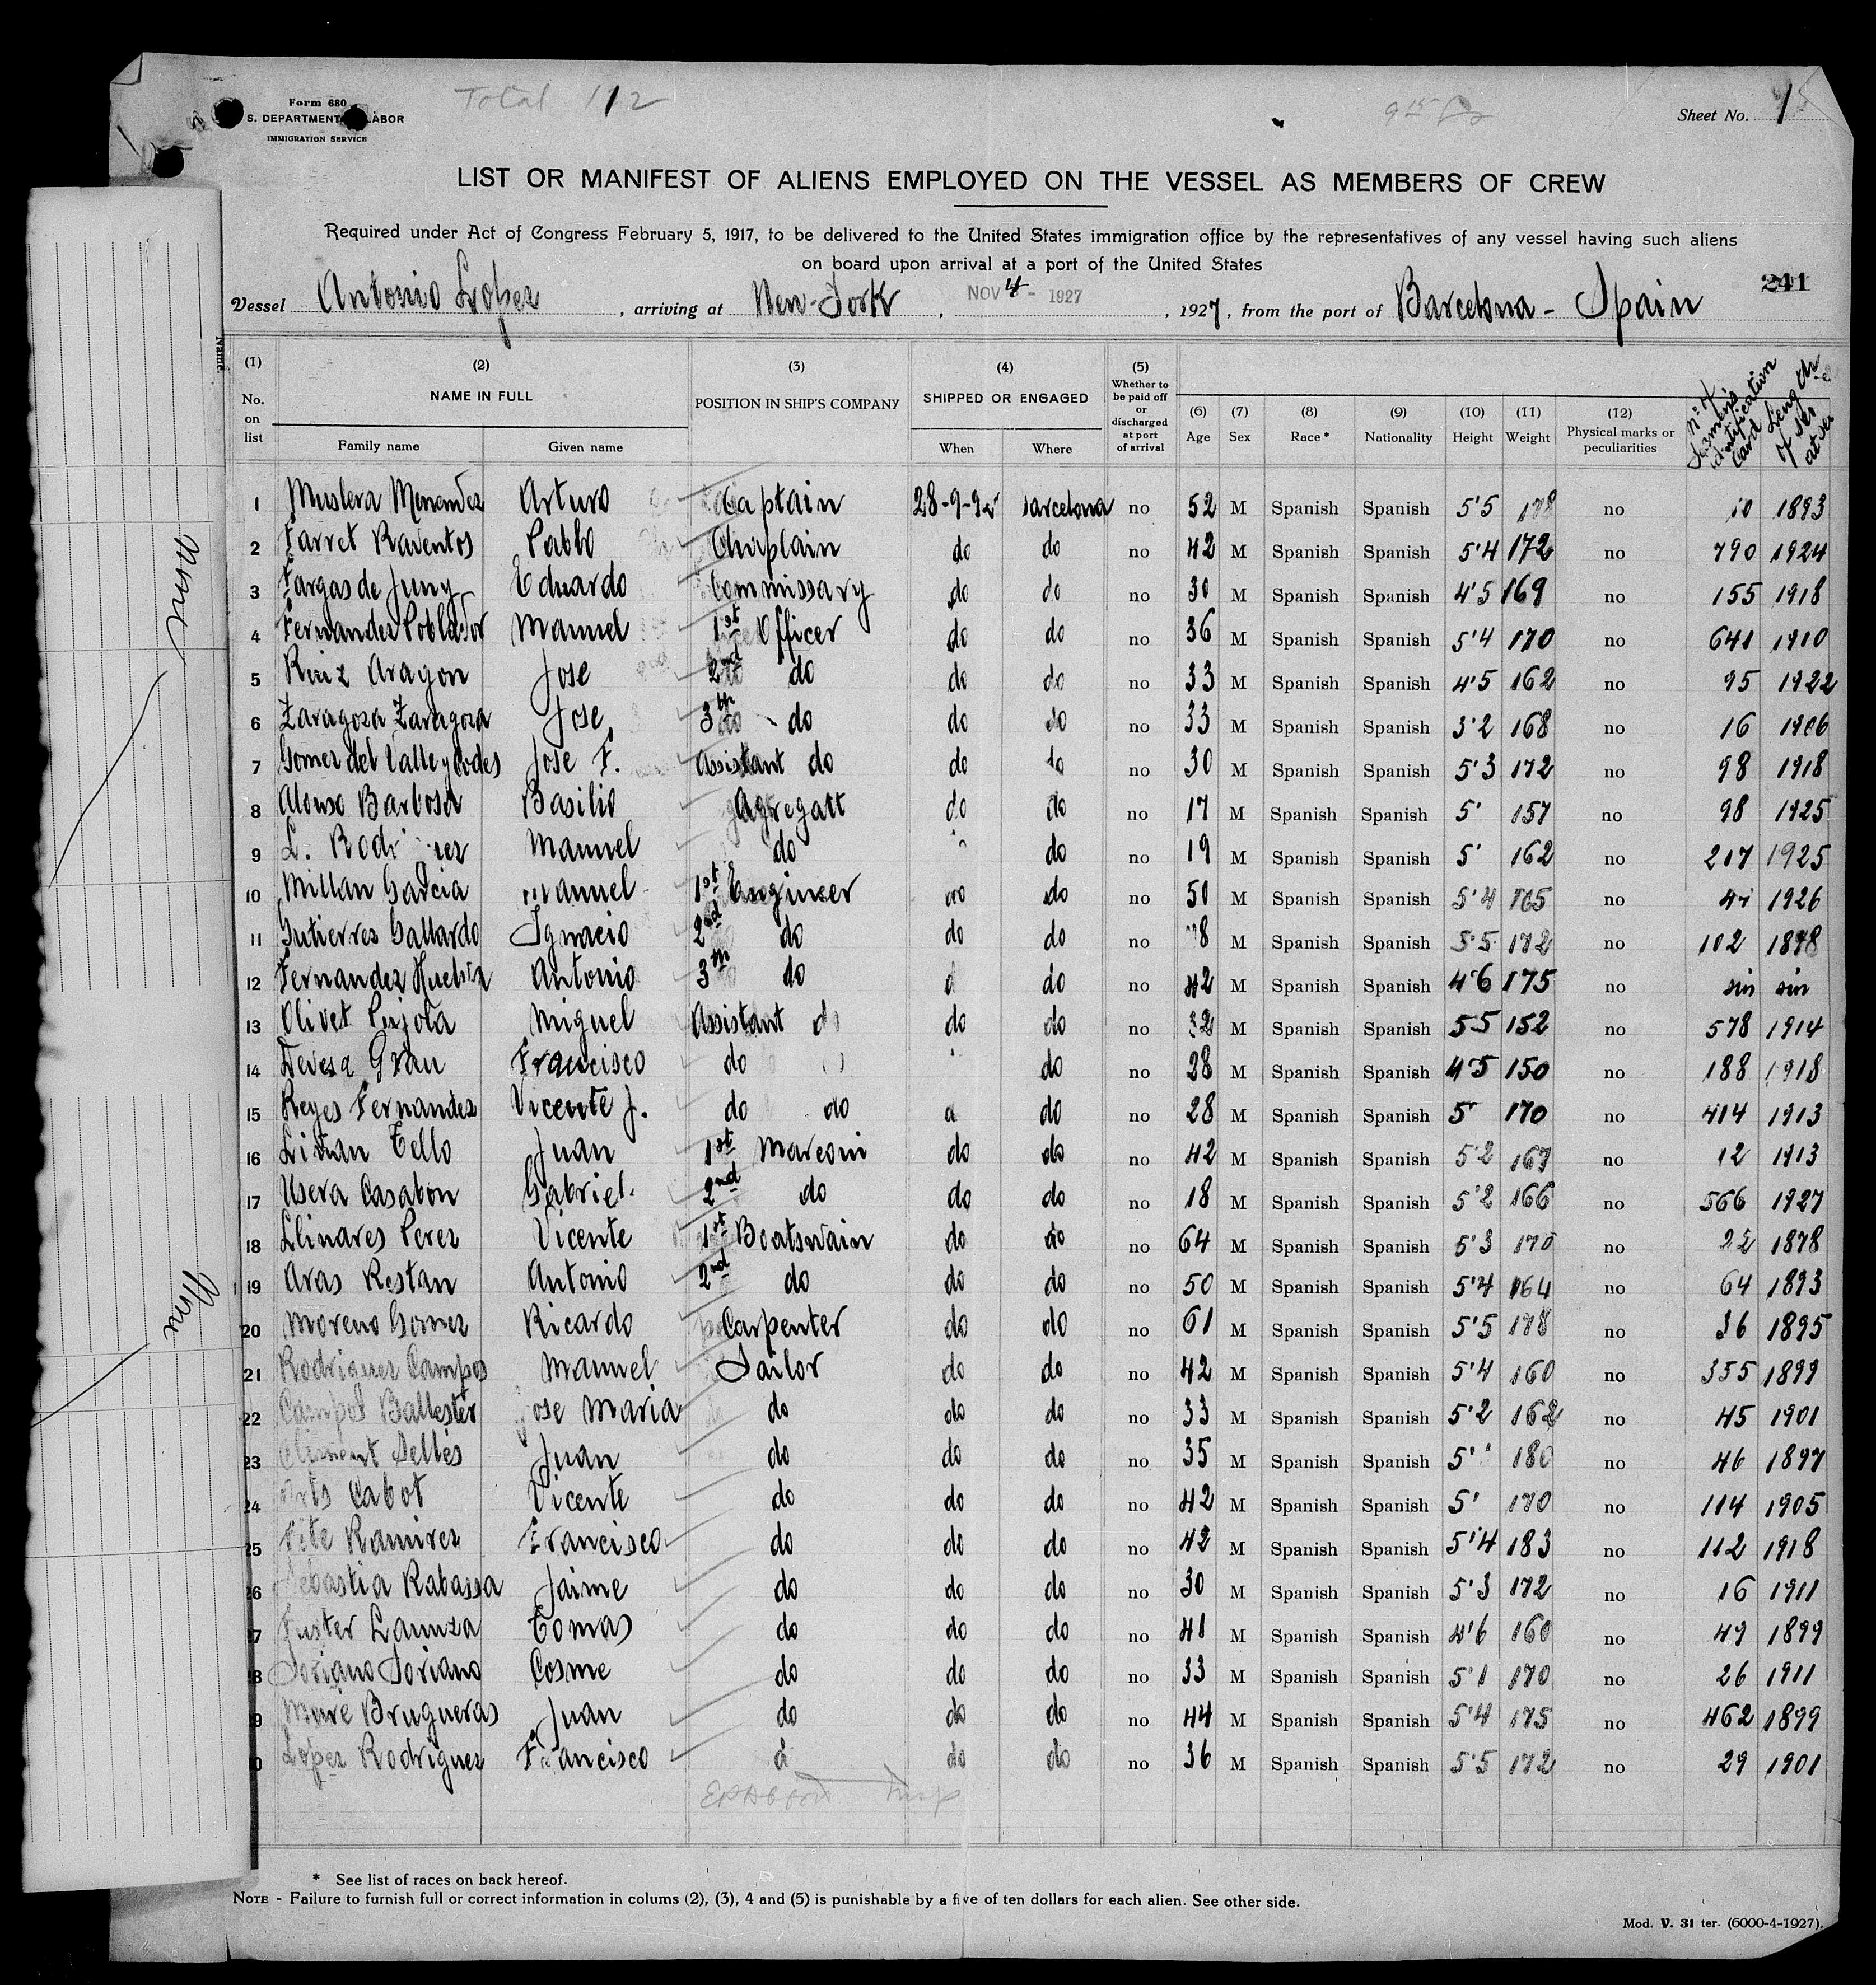 Total 112
Form 680
S. DEPARTMENT LABOR
IMMIGRATION SERVICE
Sheet No. 1
LIST OR MANIFEST OF ALIENS EMPLOYED ON THE VESSEL AS MEMBERS OF CREW
Required under Act of Congress February 5, 1917, to be delivered to the United States immigration office by the representatives of any vessel having such aliens
on board upon arrival at a port of the United States
241
Vessel Antonio Lopez , arriving at New-York , NOV 4 - 1927 , 1927, from the port of Barcelona - Spain
(1) No. on list (2) NAME IN FULL Family name Given name (3) POSITION IN SHIP'S COMPANY (4) SHIPPED OR ENGAGED When Where (5) Whether to be paid off or discharged at port of arrival (6) Age (7) Sex (8) Race * (9) Nationality (10) Height (11) Weight (12) Physical marks or peculiarities Nº of Seamen's identification Card
1 Muslera Menendez Arturo Captain 28-9-92 Barcelona no 52 M Spanish Spanish 5'5 178 no 10 1893
2 Farret Raventos Pablo Chaplain do do no 42 M Spanish Spanish 5'4 172 no 790 1924
3 Fargas de Juny Eduardo Commissary do do no 30 M Spanish Spanish 4'5 169 no 155 1918
4 Fernandez Poblador Manuel 1st Officer do do no 36 M Spanish Spanish 5'4 170 no 641 1910
5 Ruiz Aragon Jose 2nd do do do no 33 M Spanish Spanish 4'5 162 no 95 1922
6 Zaragoza Zaragoza Jose 3th do do do no 33 M Spanish Spanish 3'2 168 no 16 1906
7 Gomez del Valle y Jose F. Assistant do do do no 30 M Spanish Spanish 5'3 172 no 98 1918
8 Alonso Barbosa Basilio Agregatt do do no 17 M Spanish Spanish 5' 157 no 98 1925
9 L. Manuel do do no 19 M Spanish Spanish 5' 162 no 217 1925
10 Millan Garcia Manuel 1st Engineer do do no 50 M Spanish Spanish 5'4 165 no 1926
11 Gutierrez Gallardo Ignacio 2nd do do do no M Spanish Spanish 5'5 172 no 102 1898
12 Fernandez Antonio 3th do do no 42 M Spanish Spanish 4'6 175 no sin sin
13 Olivet Pujola Miguel Assistant do do do no 32 M Spanish Spanish 5'5 152 no 578 1914
14 Devesa Grau Francisco do do no 28 M Spanish Spanish 4'5 150 no 188 1918
15 Reyes Fernandez Vicente J. do do do no 28 M Spanish Spanish 5' 170 no 414 1913
16 Listan Tello Juan 1st Marconi do do no 42 M Spanish Spanish 5'2 167 no 12 1913
17 Usera Casabon Gabriel. 2nd do do do no 18 M Spanish Spanish 5'2 166 no 566 1927
18 Llinares Perez Vicente 1st Boatswain do do no 64 M Spanish Spanish 5'3 170 no 22 1878
19 Aras Restan Antonio 2nd do do do no 50 M Spanish Spanish 5'4 164 no 64 1893
20 Moreno Gomez Ricardo Carpenter do do no 61 M Spanish Spanish 5'5 178 no 36 1895
21 Rodriguez Campos Manuel Sailor do do no 42 M Spanish Spanish 5'4 160 no 355 1899
22 Campos Ballester Jose Maria do do do no 33 M Spanish Spanish 5'2 162 no 45 1901
23 Climent Selles Juan do do do no 35 M Spanish Spanish 5' 180 no 46 1897
24 Orts Cabot Vicente do do do no 42 M Spanish Spanish 5' 170 no 114 1905
25 Pite Ramirez Francisco do do do no 42 M Spanish Spanish 5'4 183 no 112 1918
26 Sebastia Rabassa Jaime do do do no 30 M Spanish Spanish 5'3 172 no 16 1911
7 Fuster Tomas do do do no 41 M Spanish Spanish 4'6 160 no 49 1899
8 Soriano Soriano Cosme do do do no 33 M Spanish Spanish 5'1 170 no 26 1911
9 Mure Brugueras Juan do do do no 44 M Spanish Spanish 5'4 175 no 462 1899
0 Lopez Rodriguez Francisco do do no 36 M Spanish Spanish 5'5 172 no 29 1901
* See list of races on back hereof.
NOTE - Failure to furnish full or correct information in colums (2), (3), 4 and (5) is punishable by a five of ten dollars for each alien. See other side.
Mod. V. 31 ter. (6000-4-1927).
Name
None
None